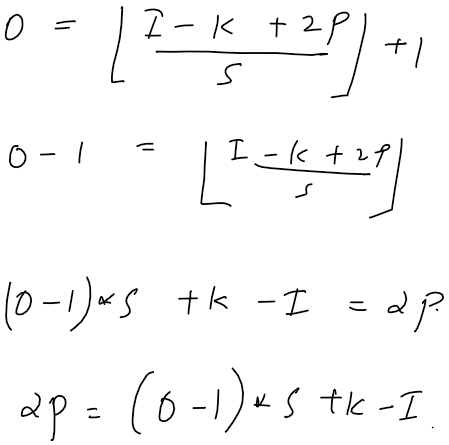 O = ⌊(I - K + 2P)/S⌋ + 1
O - 1 = ⌊(I - K + 2P)/S⌋
(O - 1) * S + K - I = 2P.
2P = (O - 1) * S + K - I.